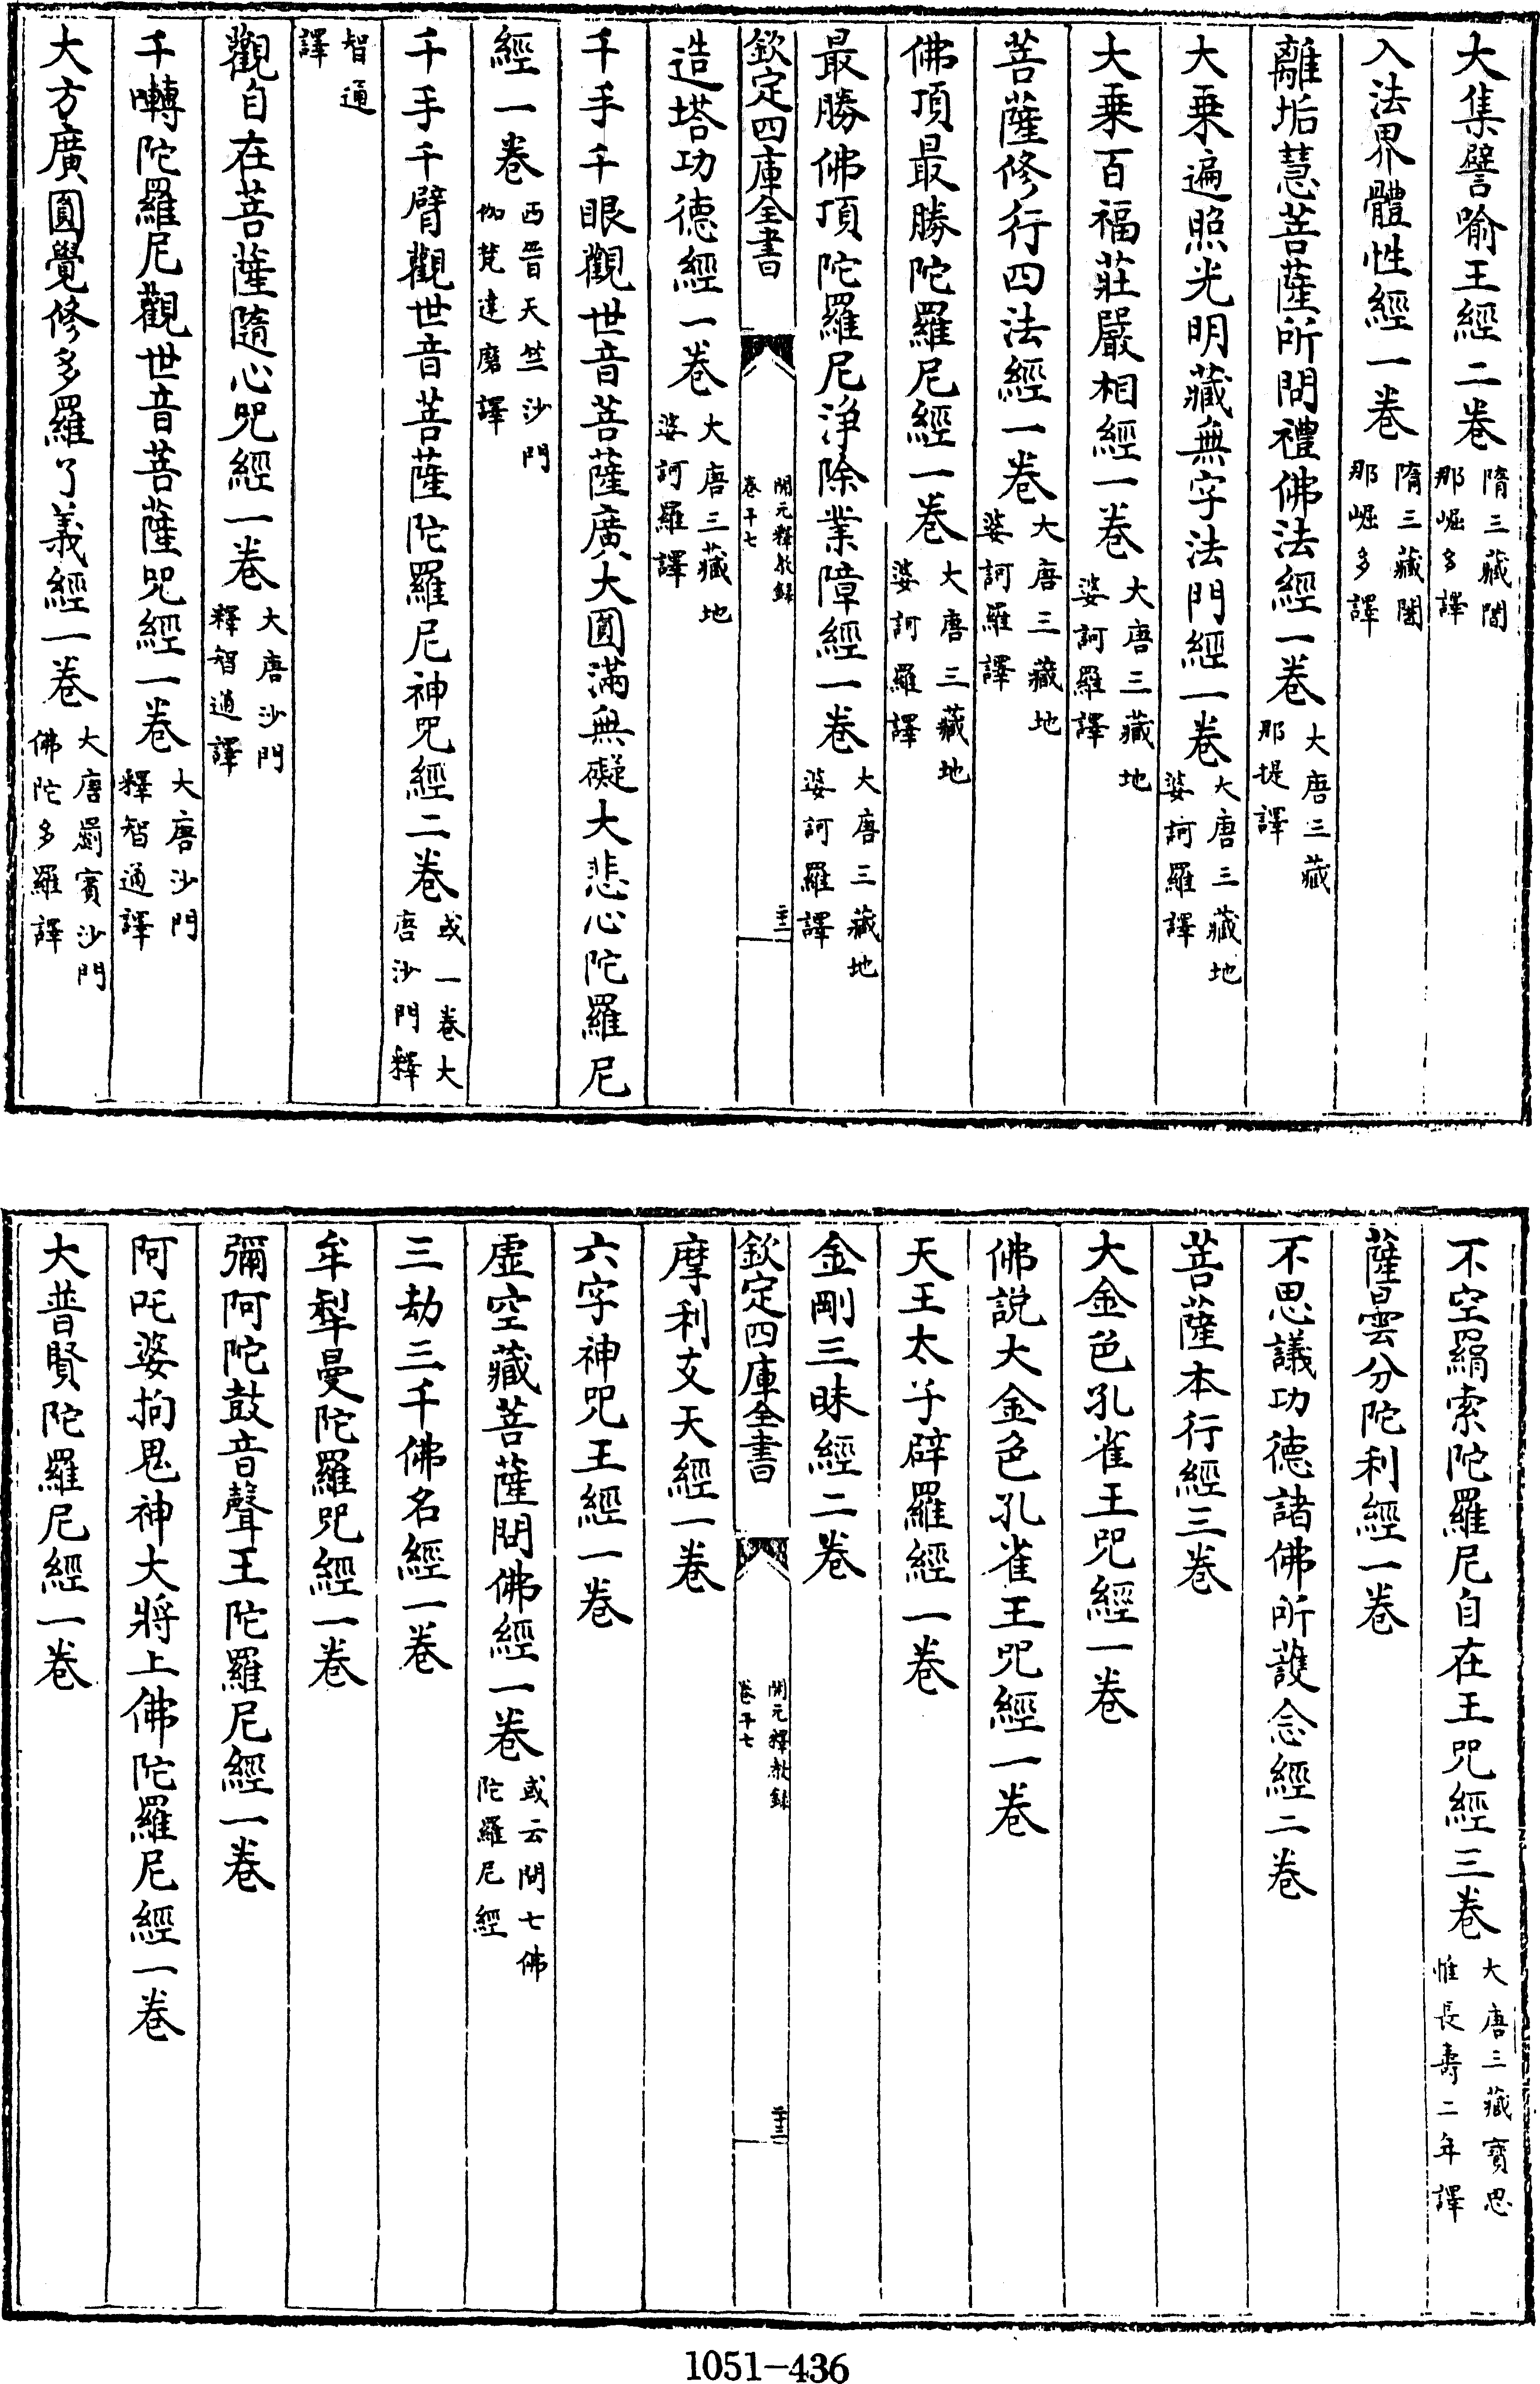 大集譬喻王經二卷隋三藏闍那崛多譯
入法界體性經一卷隋三藏闍那崛多譯
離垢慧菩薩所問禮佛法經一卷大唐三藏那提譯
大乗遍照光明藏無字法門經一卷大唐三藏地婆訶羅譯
大乗百福莊嚴相經一卷大唐三藏地婆訶羅譯
菩薩修行四法經一卷大唐三藏地婆訶羅譯
佛頂最勝陀羅尼經一卷大唐三藏地婆訶羅譯
最勝佛頂陀羅尼淨除業障經一卷大唐三藏地婆訶羅譯
欽定四庫全書 開元釋教録卷十七 二十二
造塔功德經一卷大唐三藏地婆訶羅譯
千手千眼觀世音菩薩廣大圓滿無礙大悲心陀羅尼
經一卷西晉天竺沙門伽梵達磨譯
千手千臂觀世音菩薩陀羅尼神咒經二卷或一卷大唐沙門釋
智通譯
觀自在菩薩隨心咒經一卷大唐沙門釋智通譯
千囀陀羅尼觀世音菩薩咒經一卷大唐沙門釋智通譯
大方廣圓覺修多羅了義經一卷大唐罽賓沙門佛陀多羅譯
不空羂索陀羅尼自在王咒經三卷大唐三藏寶思惟長壽二年譯
薩曇分陀利經一卷
不思議功德諸佛所護念經二卷
菩薩本行經三卷
大金色孔雀王咒經一卷
佛說大金色孔雀王咒經一卷
天王太子辟羅經一卷
金剛三昧經二卷
欽定四庫全書 開元釋教録卷十七 二十三
摩利支天經一卷
六字神咒王經一卷
虛空藏菩薩問佛經一卷或云問七佛陀羅尼經
三劫三千佛名經一卷
牟犁曼陀羅咒經一卷
彌阿陀鼓音聲王陀羅尼經一卷
阿吒婆拘鬼神大將上佛陀羅尼經一卷
大普賢陀羅尼經一卷
1051-436